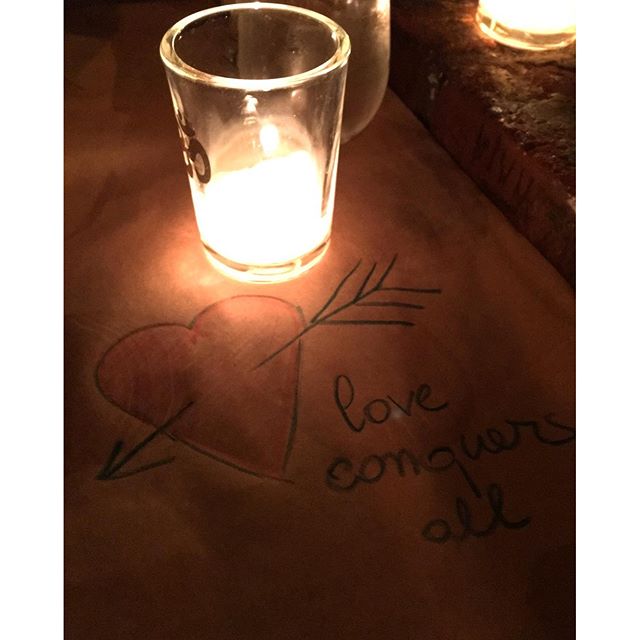 love
conquers
all